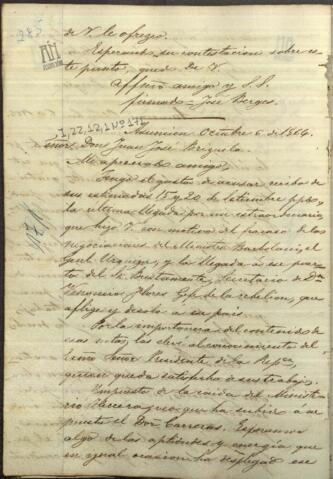 de V. le ofrezco.
Esperando su contestacion sobre es
te punto, quedo de V.
Affmo amigo y S. S.
firmado - José Berges.
I, 22, 12, 1 Nº 172
Asuncion Octubre 6 de 1864.
Señor Don Juan José Brizuela.
Mi apreciado amigo,
Tengo el gusto de acusar recibo de
sus estimadas 15 y 20 de Setiembre ppdo,
la ultima llegada por un estraordinario
que hizo V. con motivo del fracaso de las
negociaciones del Ministro Barbolani, el
Genl Urquiza, y la llegada á ese puer
to del Sr Bustamante, Secretario de Dn
Venancio Flores Gefe de la rebelion, que
aflige y desola a ese pais.
Por la importancia del contenido de
esas notas, las elevé al conocimiento del
Exmo Señor Presidente de la Repca,
quien queda satisfecho de sus trabajos.
Impuesto de la caida del Ministe
rio Herrera, y que ha subido a su
puesto el Dor Carreras. Esperamos
algo de las aptitudes y energia que
en igual ocasion ha desplegado ese